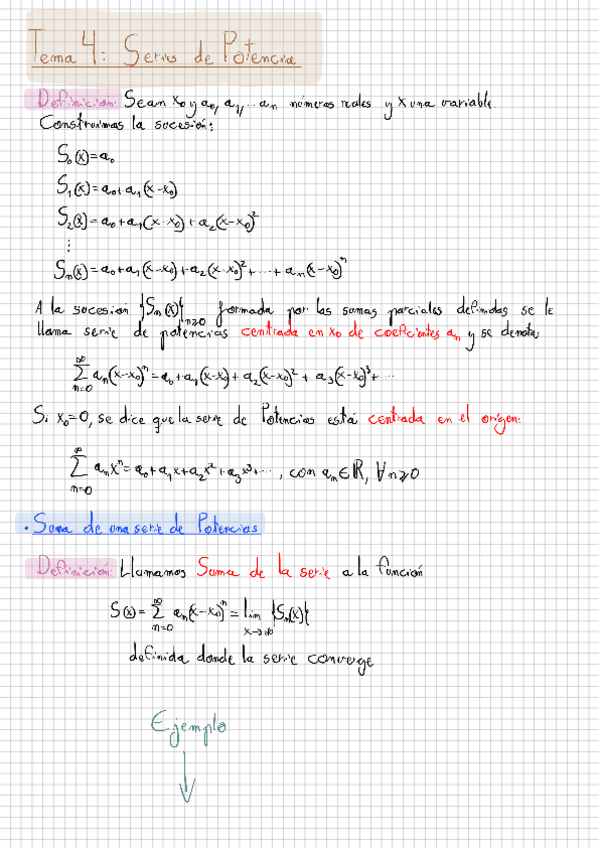 Tema 4: Series de Potencia
Definicion: Sean x₀ y a₀, a₁, ... aₙ números reales y x una variable.
Construimos la sucesión:
S₀(x)=a₀
S₁(x)=a₀+a₁(x-x₀)
S₂(x)=a₀+a₁(x-x₀)+a₂(x-x₀)²
⋮
Sₙ(x)=a₀+a₁(x-x₀)+a₂(x-x₀)²+...+aₙ(x-x₀)ⁿ
A la sucesion {Sₙ(x)}ₙ≥₀ formada por las sumas parciales definidas se le
llama serie de potencias centrada en x₀ de coeficientes aₙ y se denota:
∑_{n=0}^{∞} aₙ(x-x₀)ⁿ=a₀+a₁(x-x₀)+a₂(x-x₀)²+a₃(x-x₀)³+...
Si x₀=0, se dice que la serie de Potencias está centrada en el origen:
∑_{n=0}^{∞} aₙxⁿ=a₀+a₁x+a₂x²+a₃x³+..., con aₙ∈ℝ, ∀n≥0
• Suma de una serie de Potencias
Definición: Llamamos Suma de la serie a la función
S(x)=∑_{n=0}^{∞} aₙ(x-x₀)ⁿ=lim_{x→∞} {Sₙ(x)}
definida donde la serie converge
Ejemplo